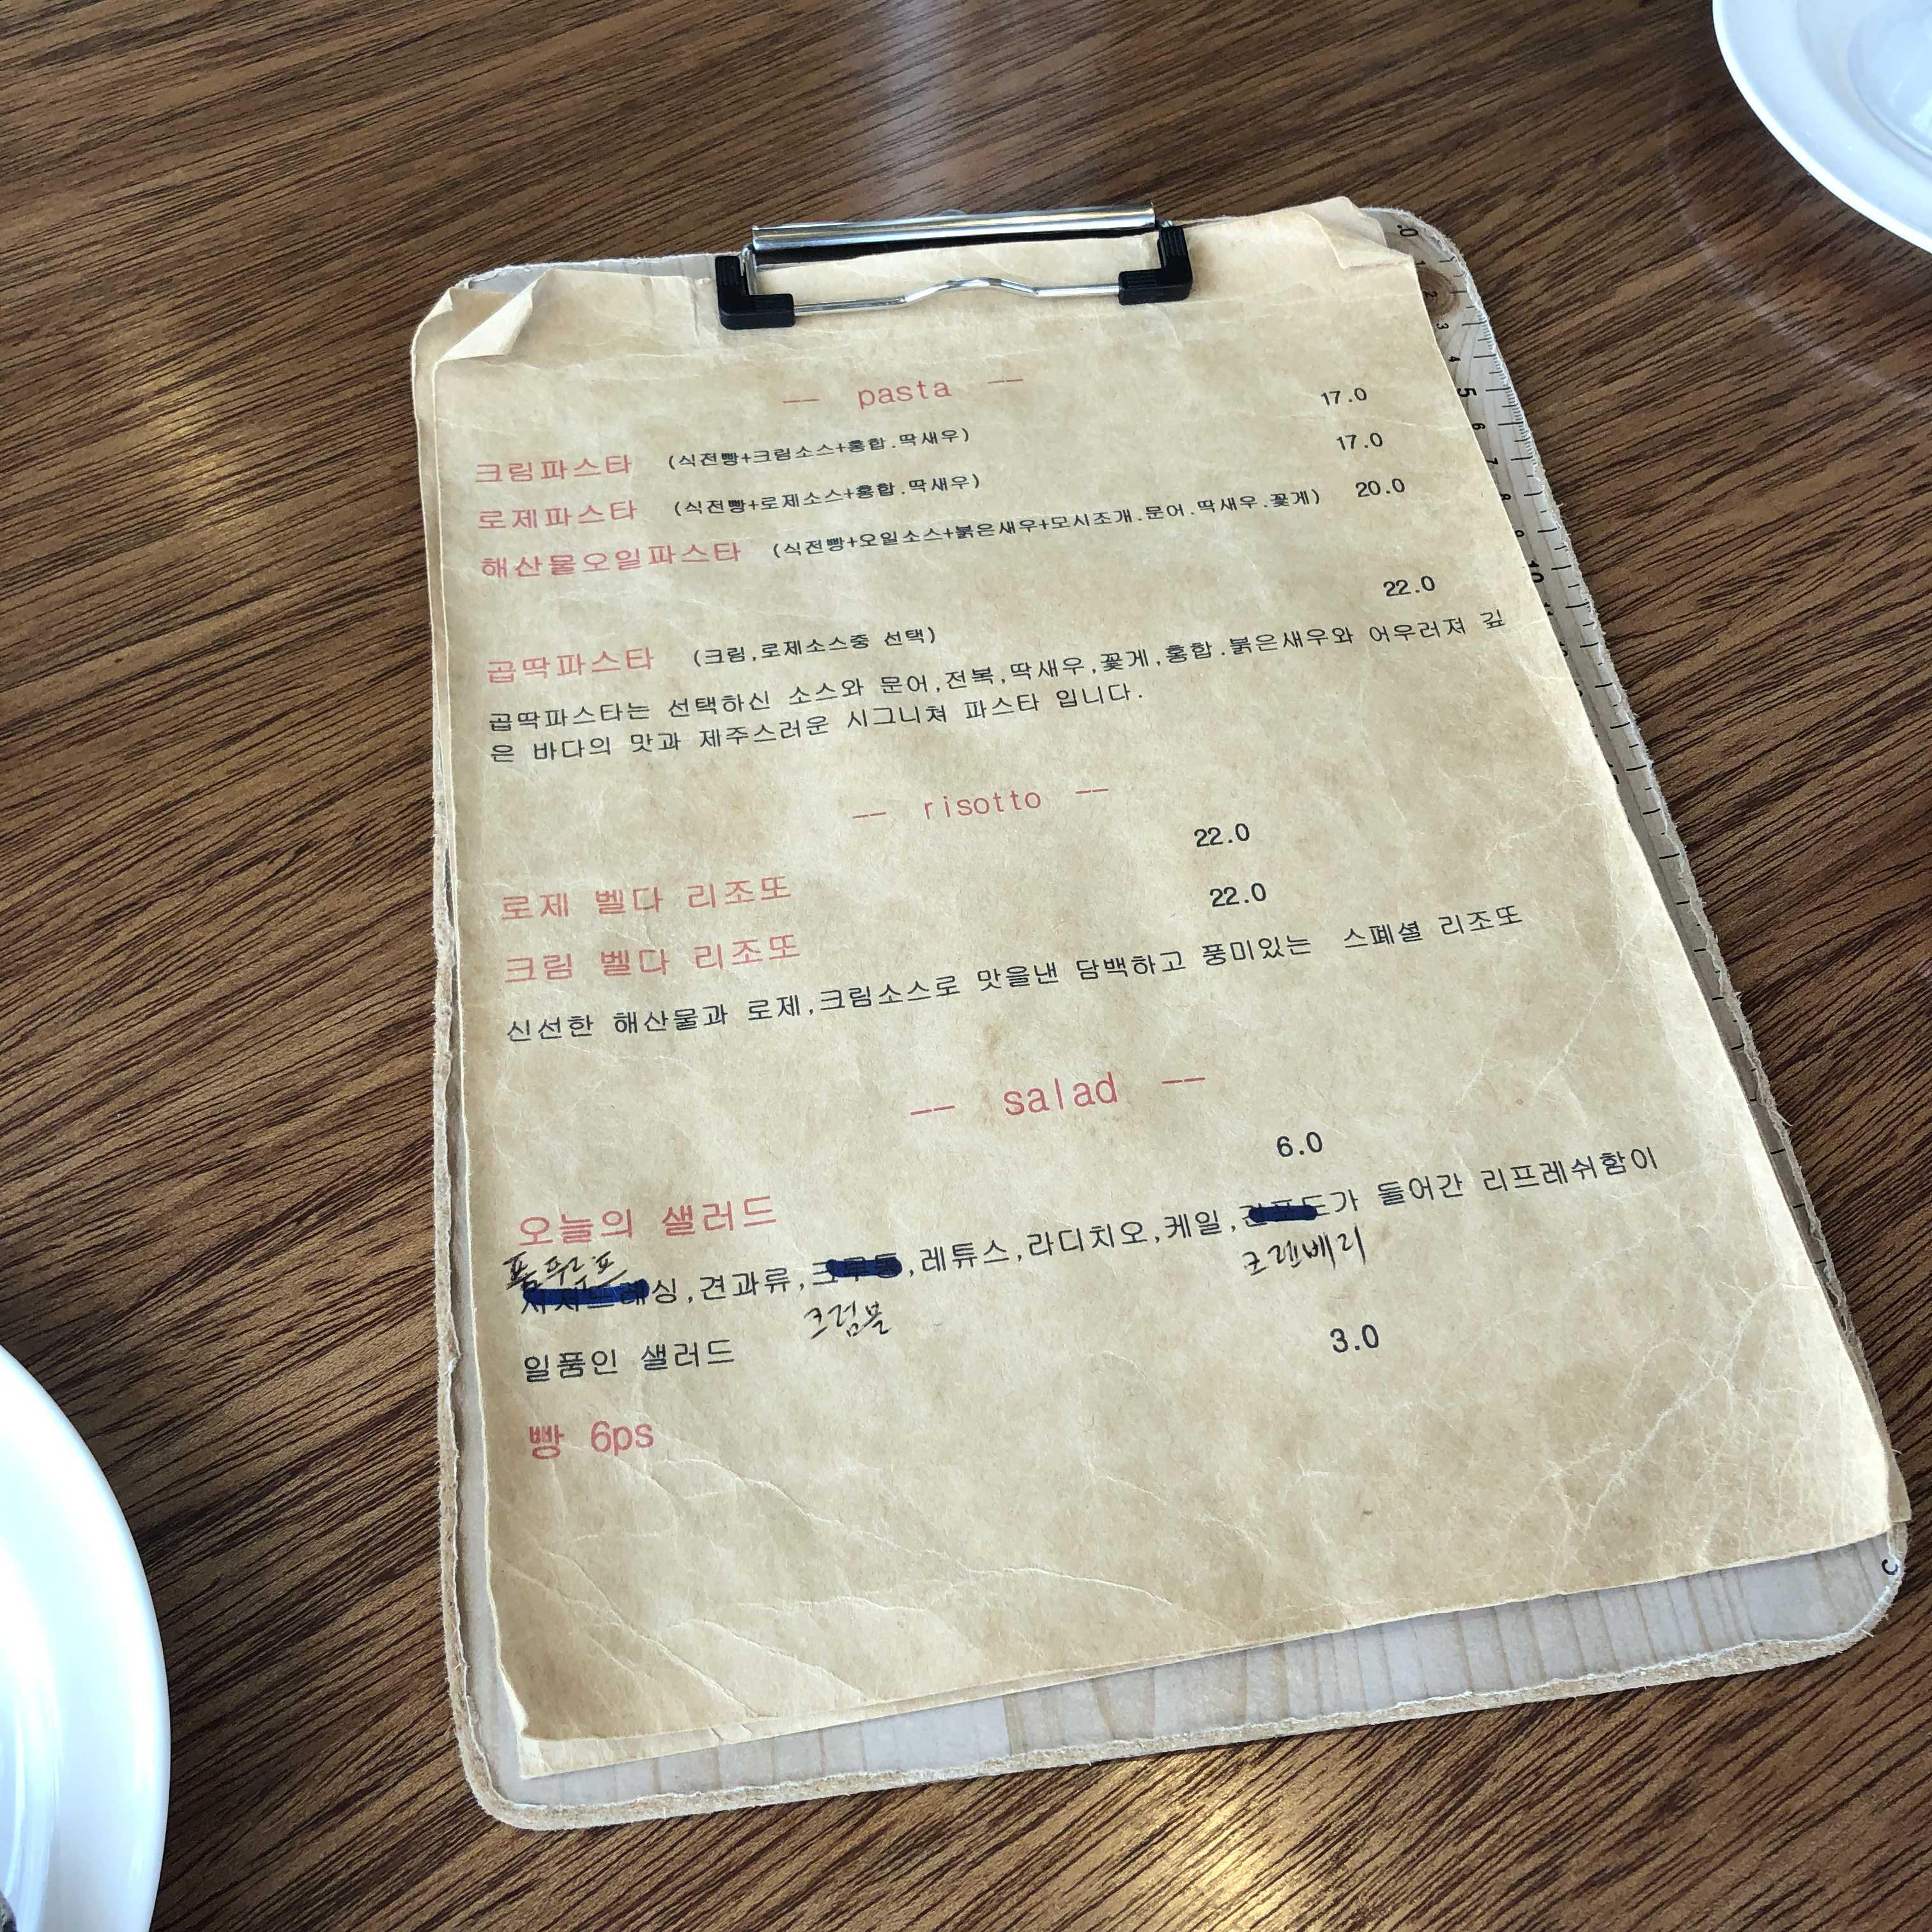 -- pasta --
크림파스타 (식전빵+크림소스+홍합.딱새우) 17.0
로제파스타 (식전빵+로제소스+홍합.딱새우) 17.0
해산물오일파스타 (식전빵+오일소스+붉은새우+모시조개.문어.딱새우.꽃게) 20.0
곱딱파스타 (크림,로제소스중 선택) 22.0
곱딱파스타는 선택하신 소스와 문어,전복,딱새우,꽃게,홍합.붉은새우와 어우러져 깊
은 바다의 맛과 제주스러운 시그니쳐 파스타 입니다.
-- risotto --
로제 벨다 리조또 22.0
크림 벨다 리조또 22.0
신선한 해산물과 로제,크림소스로 맛을낸 담백하고 풍미있는 스폐셜 리조또
-- salad --
오늘의 샐러드 6.0
싱,견과류, ,레튜스,라디치오,케일, 가 들어간 리프레쉬함이
크럼블 크랜베리
일품인 샐러드
빵 6ps 3.0